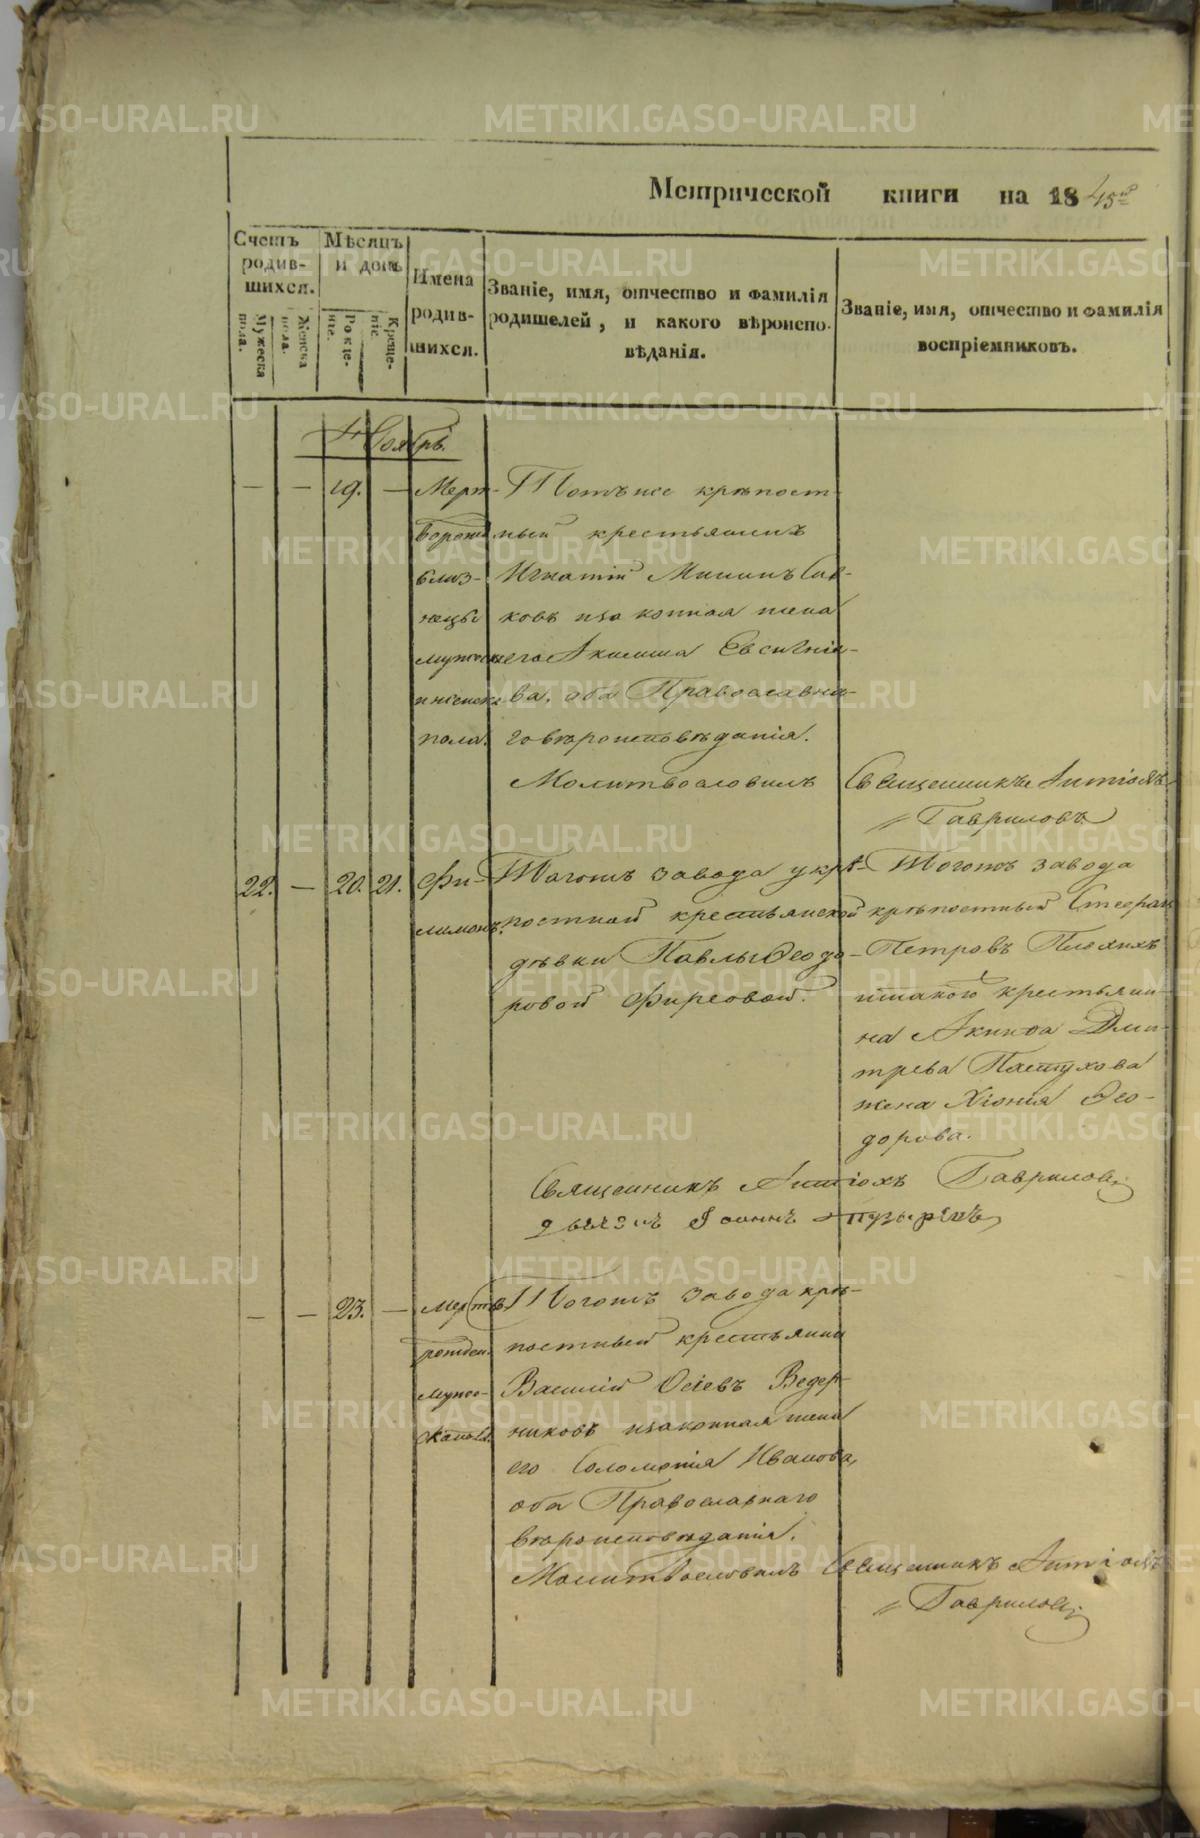 Метрической книги на 1845й
Счетъ родив-шихся.
Мужеска пола.
Женска пола.
Мѣсяцъ и день
Рожде-нія.
Креще-нія.
Имена родив-шихся.
Званіе, имя, отчество и фамилія
родителей, и какого вѣроиспо-
вѣданія.
Званіе, имя, отчество и фамилія
воспріемниковъ.
Ноябрь.
— — 19. —
Мерт-
ворожд
близ-
нецы
мужеска
и женска
пола.
Тотъ же крѣпост-
ный крестьянинъ
Игнатій Мининъ Сав-
ковъ и законная жена
его Акилина Евсигніе-
ва, оба Православна-
го вѣроисповѣданія.
Молитвословилъ Священникъ Антіохъ
Гавриловъ
22. — 20. 21.
Фи-
лимонъ.
Тогожъ завода у крѣ-
постной крестьянской
дѣвки Павлы Ѳеодо-
ровой Фирсовой.
Тогожъ завода
крѣпостный Стефанъ
Петровъ Плехихъ
и такого крестьяни-
на Акинфа Дми-
трева Пастухова
жена Хіонія Ѳео-
дорова.
Священникъ Антіохъ Гавриловъ
Іоаннъ Пузыревъ
— — 23. —
Мертво
рожден.
мужес-
ка пола.
Тогожъ завода крѣ-
постный крестьянин
Василій Осіевъ Ведер-
никовъ и законная жена
его Соломонія Иванова,
оба Православнаго
вѣроисповѣданія.
Молитвословилъ Священникъ Антіохъ
Гавриловъ
METRIKI.GASO-URAL.RU